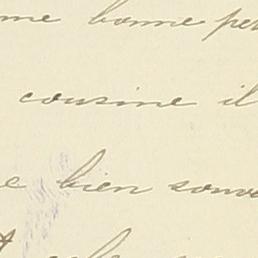 me bonne per
cousine il
e bien souve